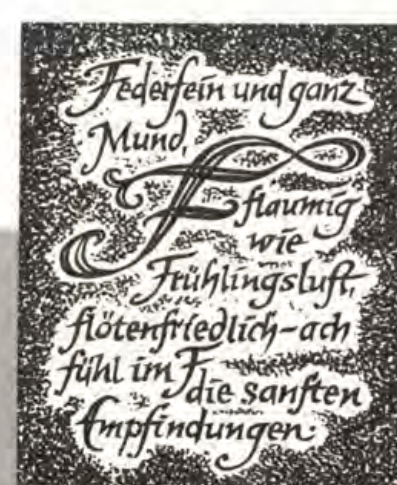 Federfein und ganz
Mund,
F flaumig
wie
Frühlingsluft,
flötenfriedlich-ach
fühl im F
die sanften
Empfindungen.